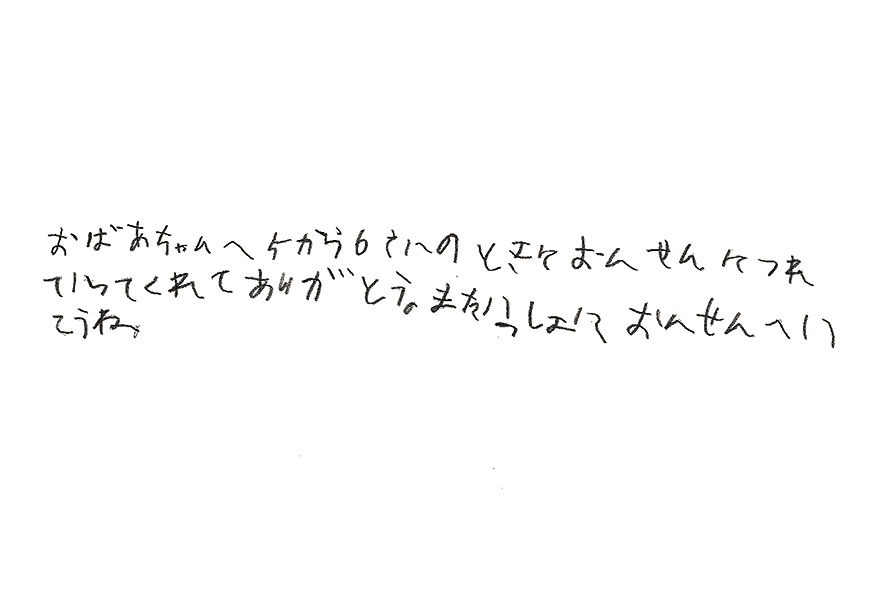 おばあちゃんへケから6さいのときにおんせんにつれ
ていってくれてありがとう。またいっしょにおんせんへい
こうね。